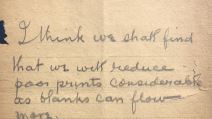 I think we shall find
that we will reduce
poor prints considerable
as blanks can flow
more.